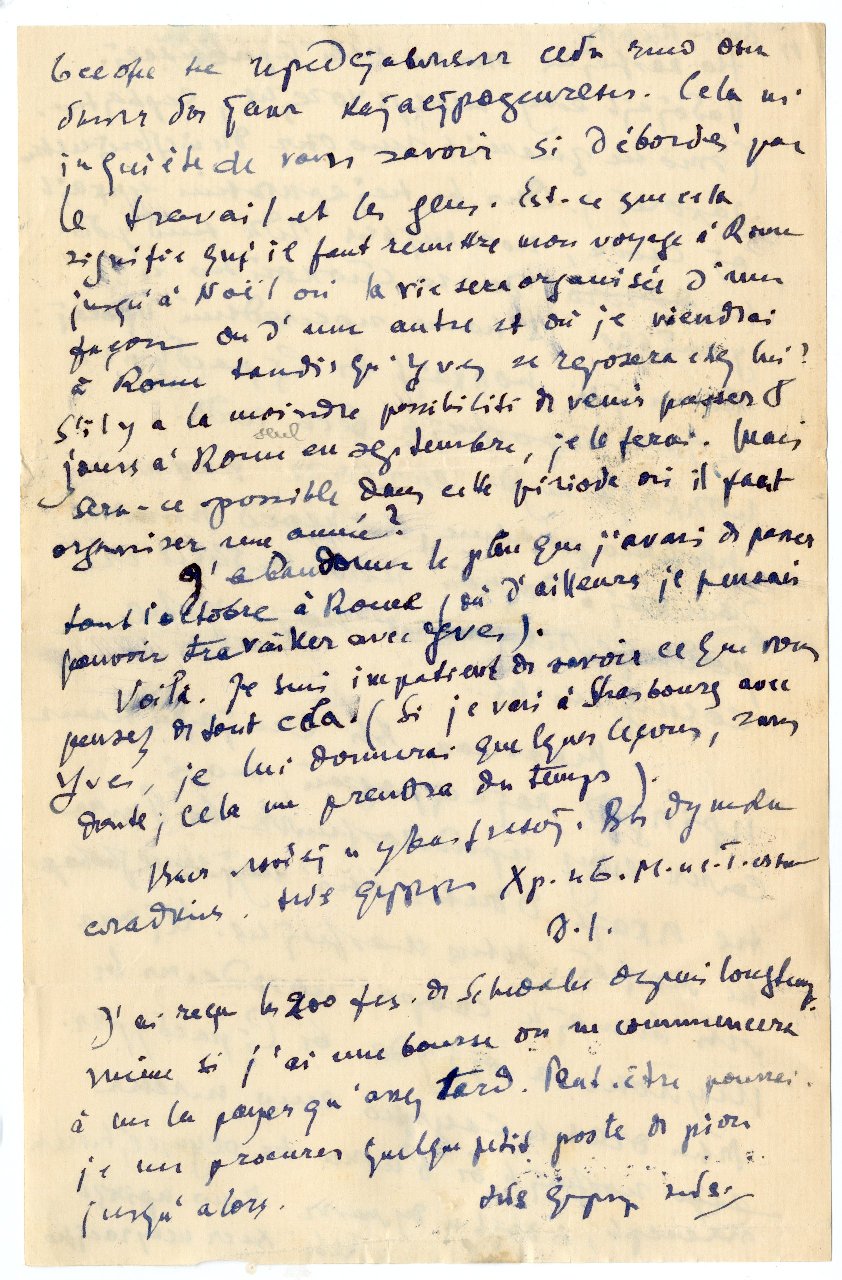 себя что они
были бы катастрофическ. Cela m'
inquiète de vous savoir si débordés par
le travail et les gens. Est-ce que cela
signifie qu'il faut remettre mon voyage à Rome
jusqu'à Noël où la vie sera organisée d'une
façon ou d'une autre et où je viendrai
à Rome tandis qu'Yves se reposera chez lui?
S'il y a la moindre possibilité de venir passer 8
jours à Rome seul en septembre, je le ferai. Mais
sera-ce possible dans cette période où il faut
organiser une année?
J'abandonne le plan que j'avais de passer
tout l'octobre à Rome (où d'ailleurs je pensais
pouvoir travailler avec Yves).
Voilà. Je suis impatient de savoir ce que vous
pensez de tout cela. (Si je vais à Strasbourg avec
Yves, je lui donnerai quelques leçons, sans
doute; cela me prendra du temps).
Вы думали
Хр. и Б. М.
D. I.
J'ai reçu les 200 frs. de depuis longtemps.
même si j'ai une bourse on ne commencera
à me la payer qu'assez tard. Peut-être pourrai-
je me procurer quelque petit poste de pion
jusqu'alors.